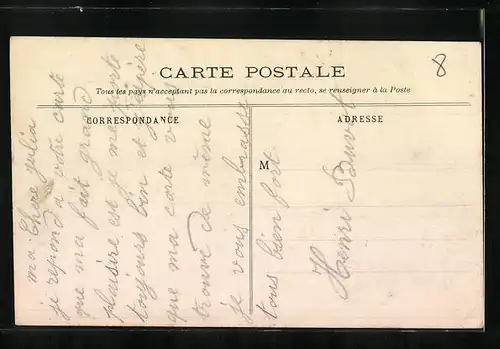 8
CARTE POSTALE
Tous les pays n'acceptant pas la correspondance au recto, se renseigner à la Poste
CORRESPONDANCE
ADRESSE
M
ma Chere Julia
je repond a votre carte
que ma fait grand
plaisire et je me porte
toujours bien et j'espère
que ma carte vous
trouve de même
je vous embrasse
tous bien fort
Henri